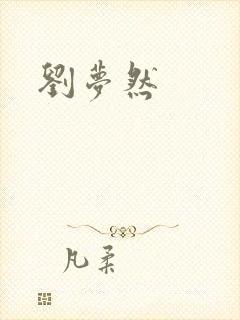 劉夢然
凡柔